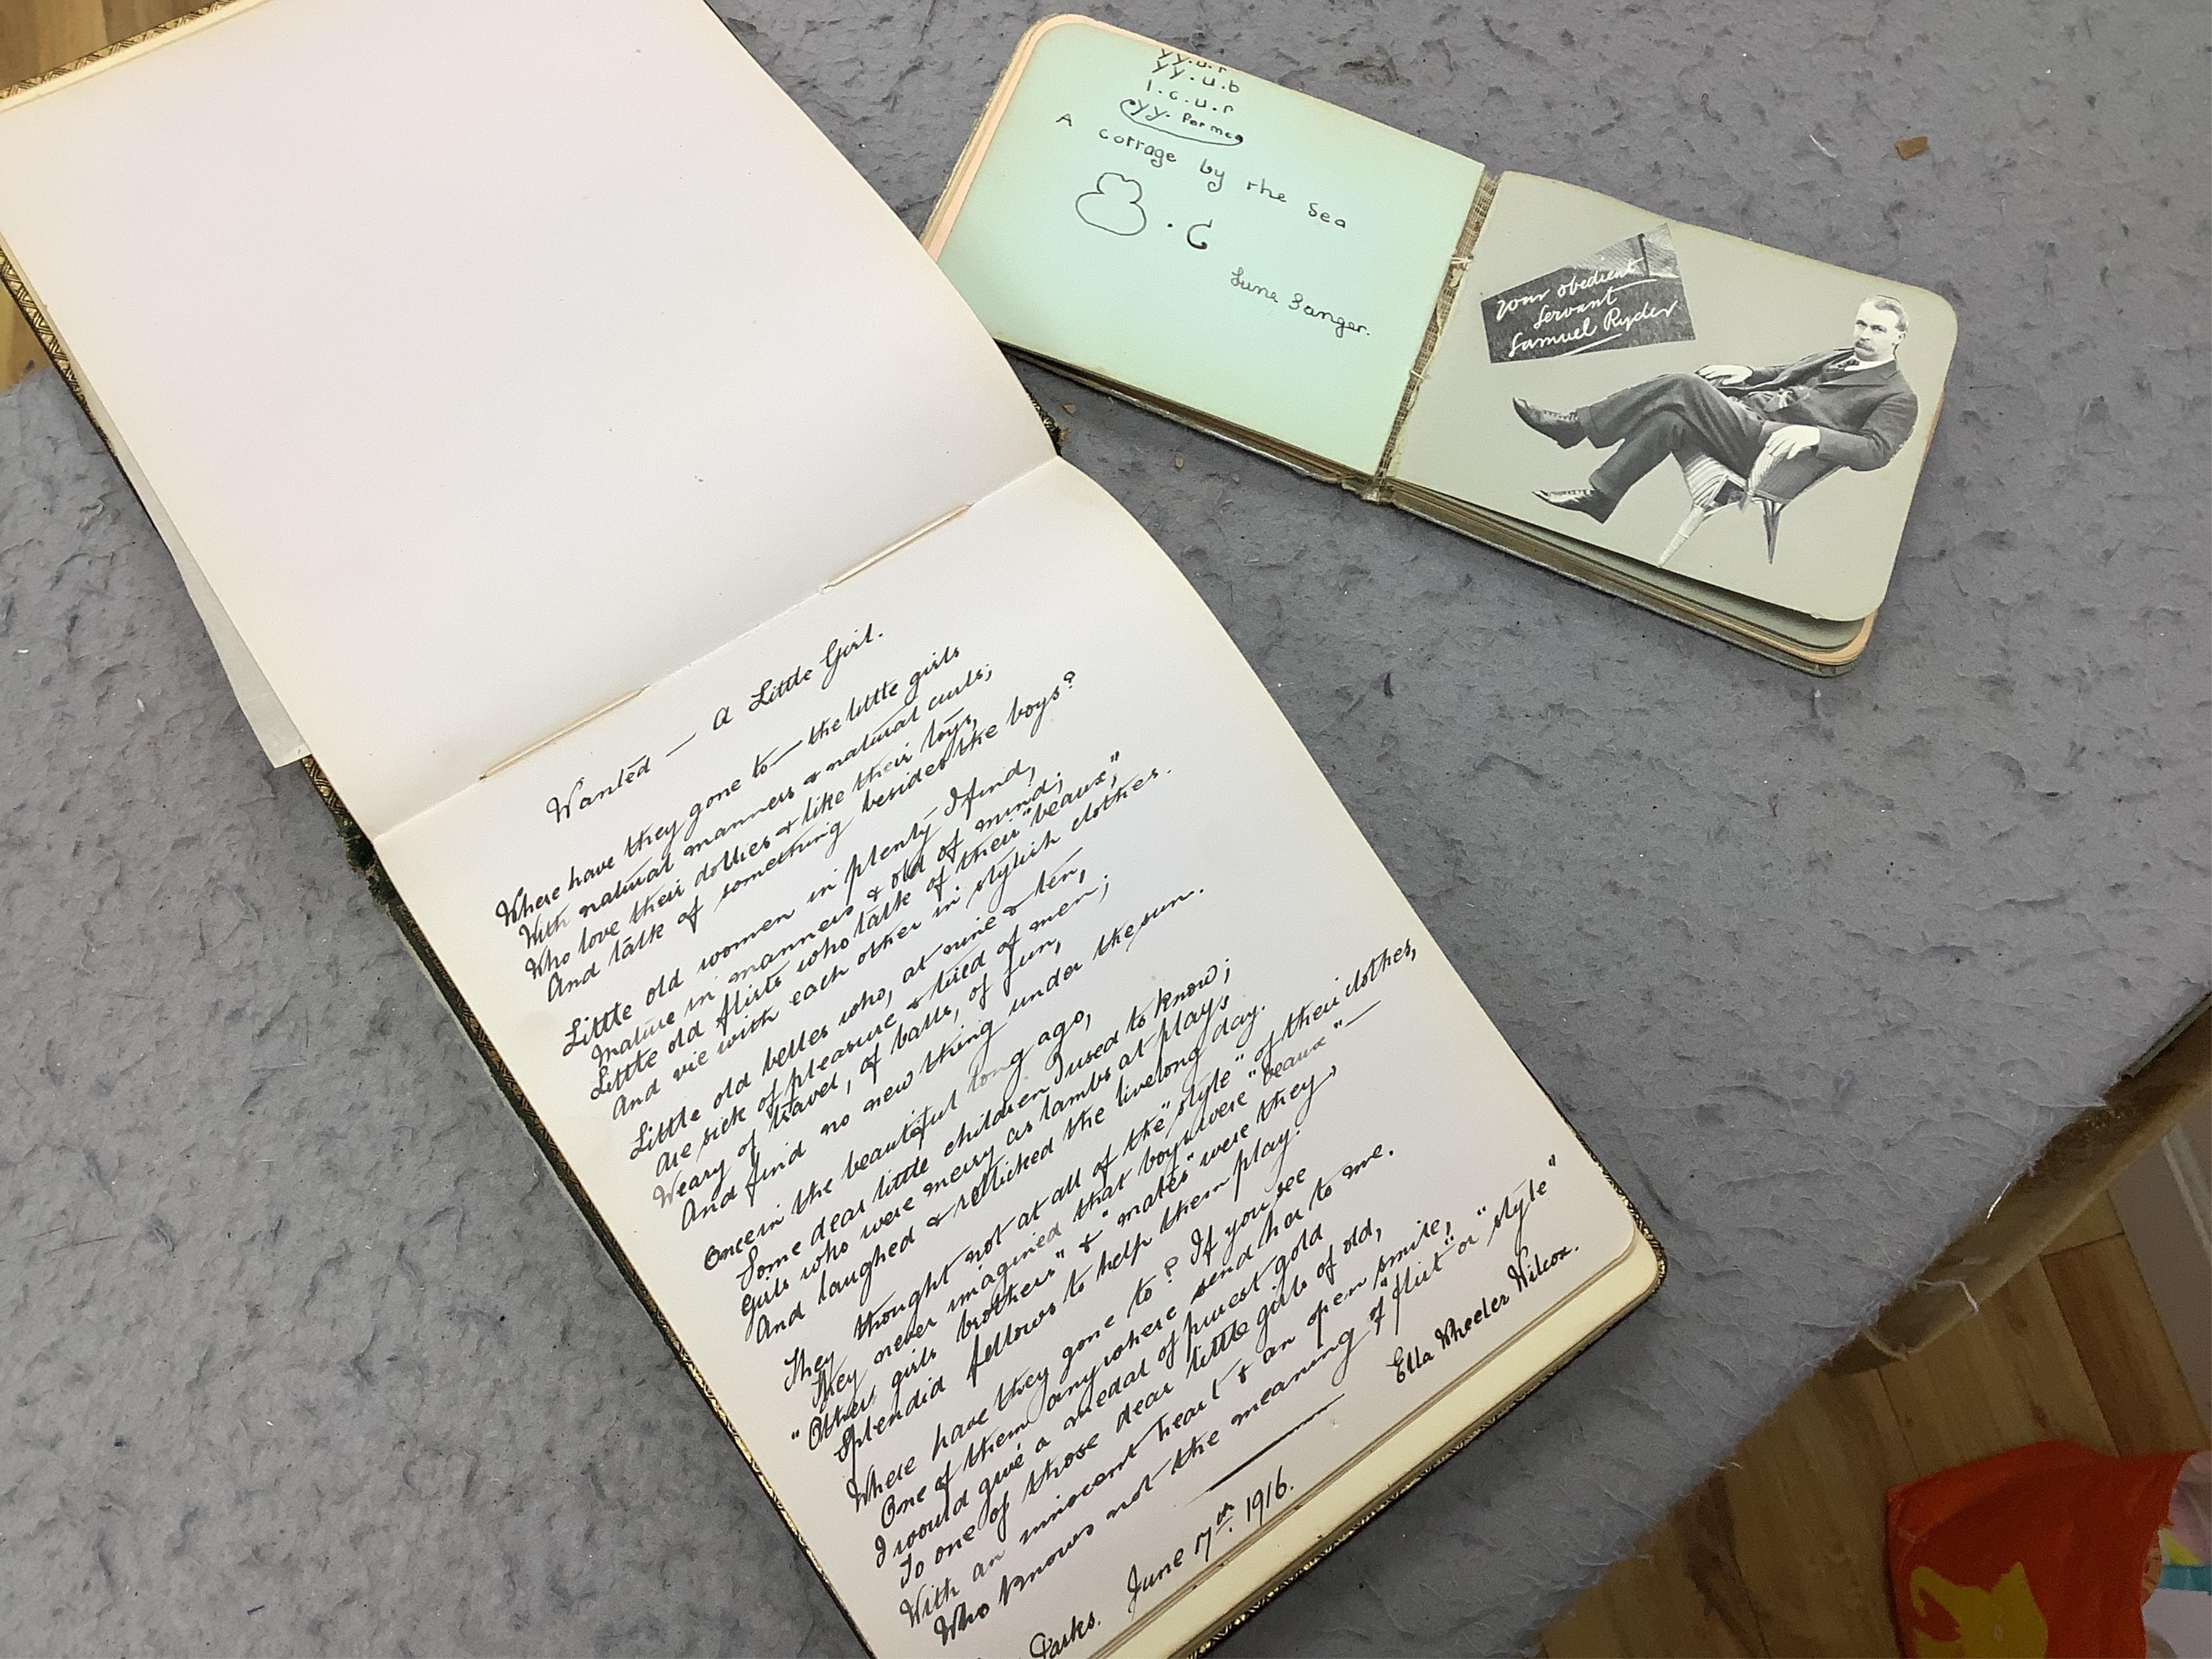 Wanted — A Little Girl.
Where have they gone to — the little girls
With natural manners & natural curls;
Who love their dollies & like their toys,
And talk of something besides the boys?
Little old women in plenty I find,
Mature in manners & old of mind;
Little old flirts who talk of their "beaux",
And vie with each other in stylish clothes.
Little old belles who, at nine & ten,
Are sick of pleasure & tired of men;
Weary of travel, of balls, of fun,
And find no new thing under the sun.
Once in the beautiful long ago,
Some dear little children I used to know;
Girls who were merry as lambs at plays
And laughed & rollicked the livelong day.
They thought not at all of the "style" of their clothes,
They never imagined that boys were "beaux" —
"Other girls' brothers" & "mates" were they,
Splendid fellows to help them play.
Where have they gone to? If you see
One of them anywhere send her to me.
I would give a medal of purest gold
To one of those dear little girls of old,
With an innocent heart & an open smile,
Who knows not the meaning of "flirt" or "style"
Ella Wheeler Wilcox.
Parks. June 17th. 1916.
yy.u.r
yy.u.b
I.c.u.r
yy. for me
A cottage by the sea
. C
June Sanger.
your obedient
servant
Samuel Ryder